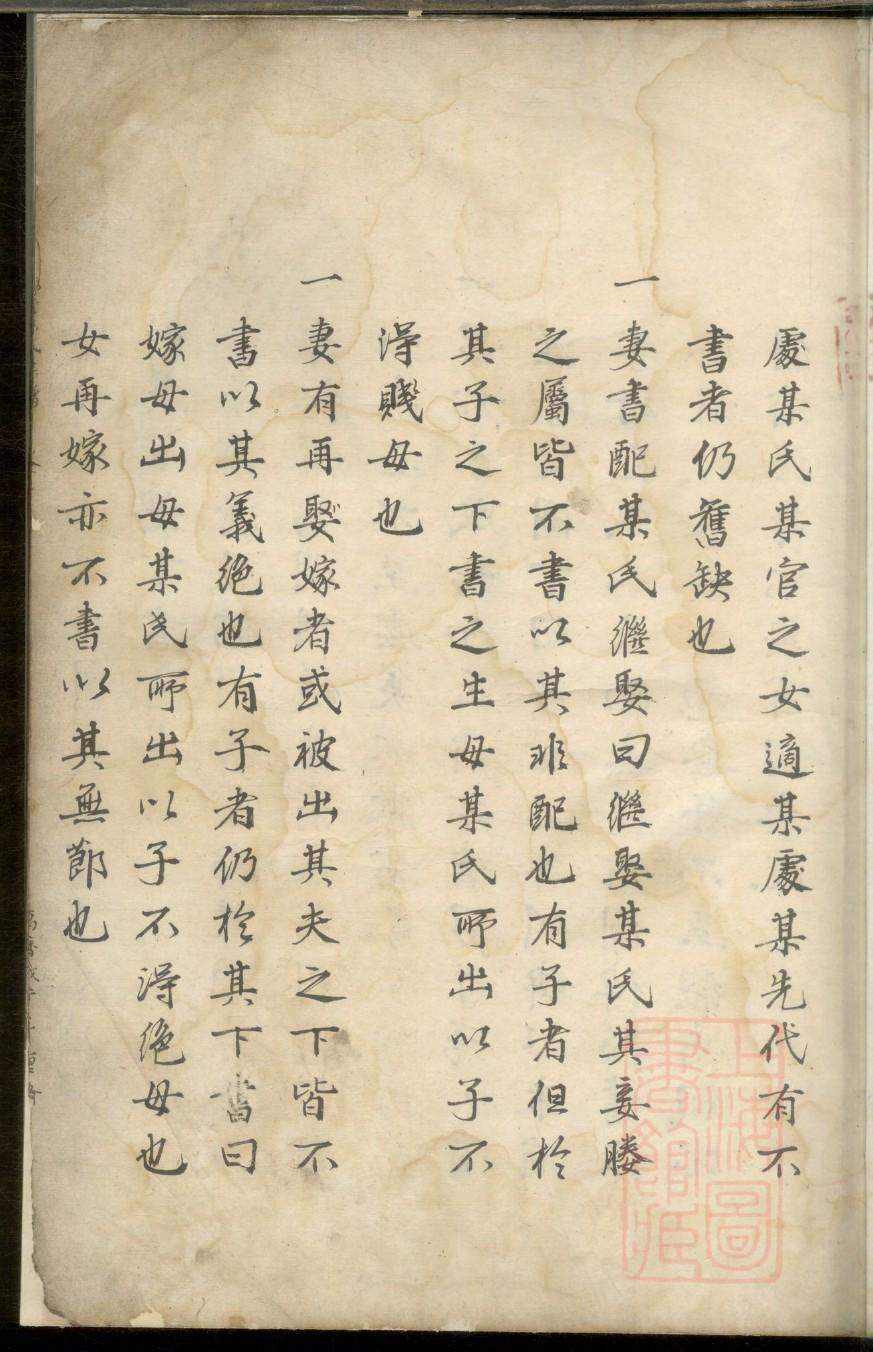 處某氏某官之女適某處某先代有不
書者仍舊缺也
一妻書配某氏繼娶曰繼娶某氏其妾媵
之屬皆不書以其非配也有子者但於
其子之下書之生母某氏所出以子不
得賤母也
一妻有再娶嫁者或被出其夫之下皆不
書以其義絕也有子者仍於其下書曰
嫁母出母某氏所出以子不得絕母也
女再嫁亦不書以其無節也
上海圖書館藏